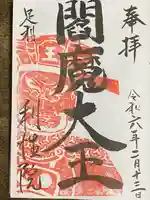 奉拝
令和六年二月十三日
閻魔大王
足利
利性院